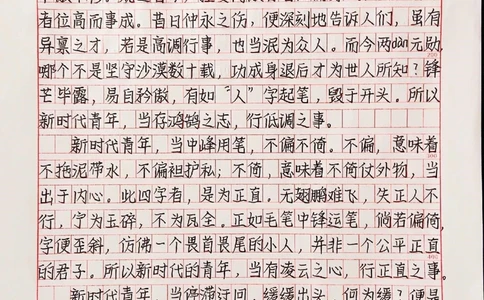 者位高而事成。昔日仲永之伤，便深刻地告诉人们，虽有
异禀之才，若是高调行事，也当泯为众人。而今两dàn元勋，
哪个不是坚守沙漠数十载，功成身退后才为世人所知？锋
芒毕露，易自矜傲，有如“人”字起笔，毁于开头。所以
新时代青年，当存鸿鹄之志，行低调之事。
新时代青年，当中峰用笔，不偏不倚。不偏，意味着
不拖泥带水，不偏袒护私；不倚，意味着不倚仗外物，当
出于内心。此四字者，是为正直。无翅鹏难飞，失正人不
行，宁为玉碎，不为瓦全。正如毛笔中锋运笔，倘若偏倚，
字便歪斜，仿佛一个畏首畏尾的小人，并非一个公平正直
的君子。所以新时代的青年，当有凌云之心，行正直之事。
新时代青年，当停滞迂回，缓缓出头。何为缓？便是